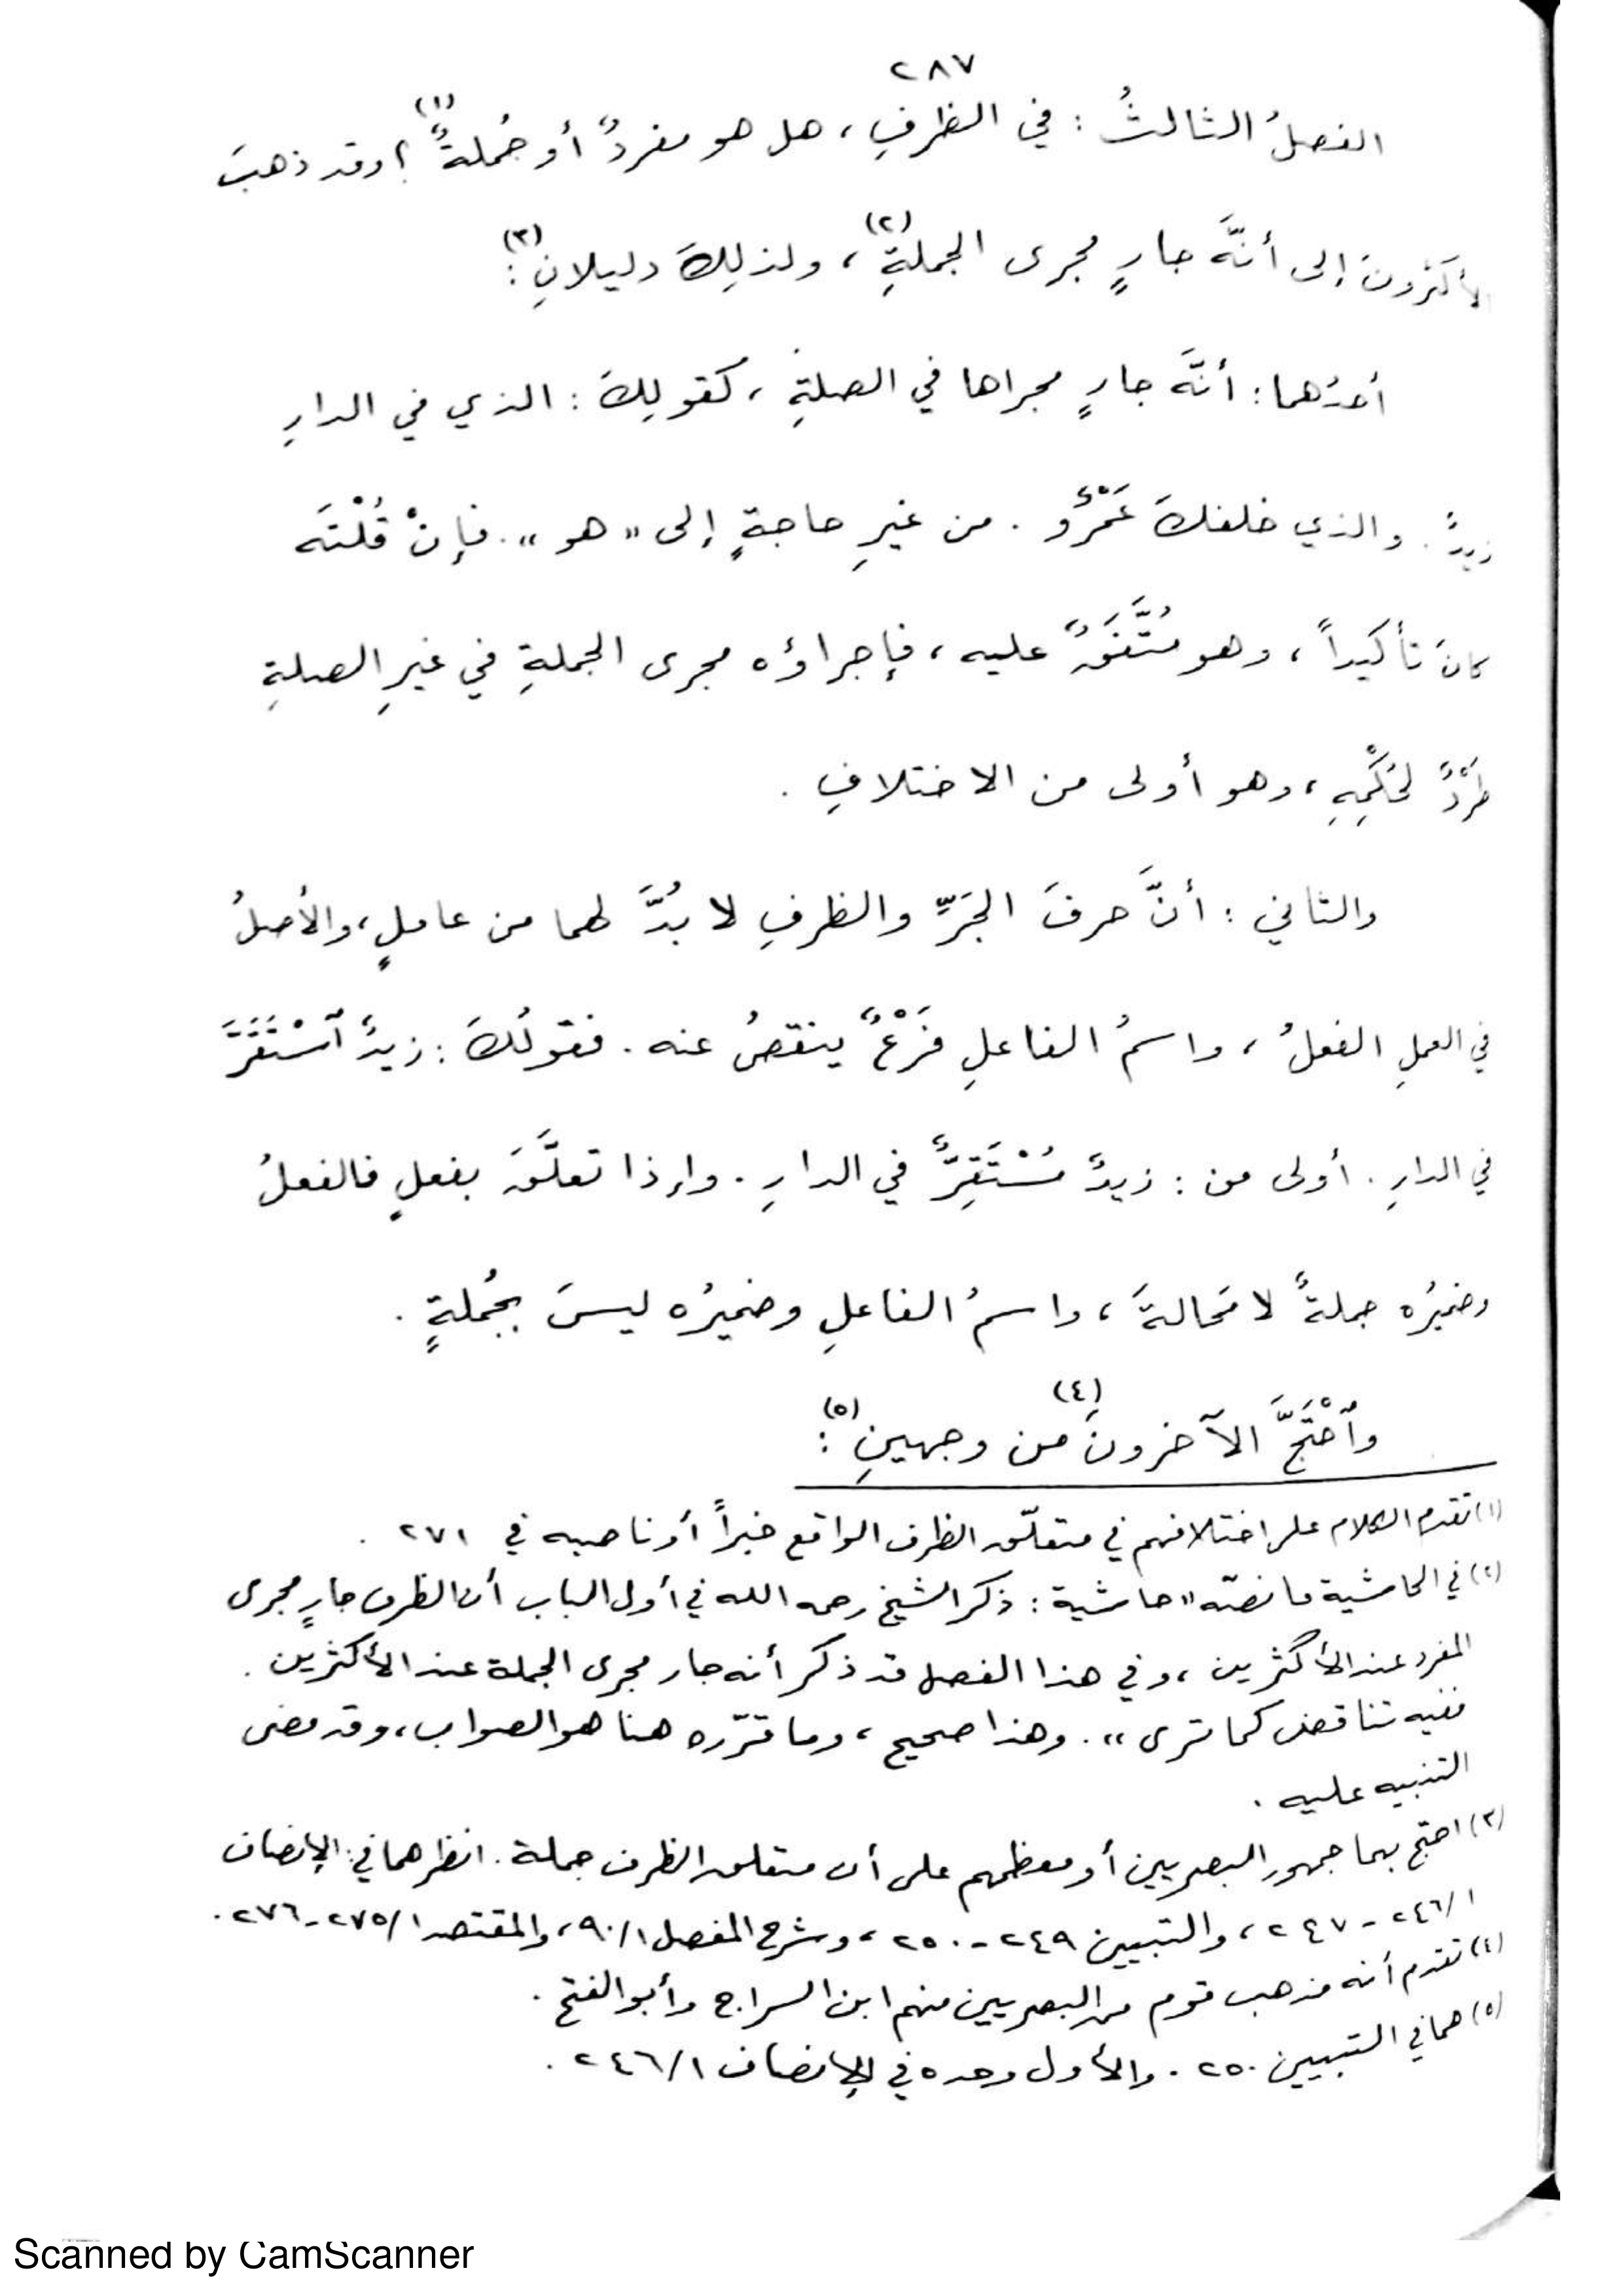 ٢٨٧
الفصلُ الثالثُ : في الظرفِ ، هل هو مفردٌ أو جُملةٌ (١) ؟ وقد ذهبَ
الأكثرُونَ إلى أنَّه جارٍ مجرى الجملةِ (٢) ، ولذلِكَ دليلانِ (٣) :
أحدُهما : أنَّه جارٍ مجراها في الصلةِ ، كقولِكَ : الذي في الدارِ
زيدٌ . والذي خلفكَ عَمْرٌو . من غيرِ حاجةٍ إلى « هو » . فإنْ قُلْتَه
كانَ تأكيداً ، وهو مُتَّفَقٌ عليه ، فإجراؤه مجرى الجملةِ في غيرِ الصلةِ
طَرْدٌ لحُكْمِهِ ، وهو أولى من الاختلافِ .
والثاني : أنَّ حرفَ الجَرِّ والظرفِ لا بُدَّ لهما من عاملٍ ، والأصلُ
في العملِ الفعلُ ، واسمُ الفاعلِ فَرْعٌ ينقصُ عنه . فقولُكَ : زيدٌ ٱسْتَقَرَّ
في الدارِ . أولى من : زيدٌ مُسْتَقِرٌّ في الدارِ . وإذا تعلَّقَ بفعلٍ فالفعلُ
وضميرُه جملةٌ لا مَحالةَ ، واسمُ الفاعلِ وضميرُه ليسَ بجُملةٍ .
وٱحْتَجَّ الآخرونَ (٤) من وجهينِ (٥) :
(١) تقدم الكلام على اختلافهم في متعلّق الظرف الواقع خبراً أو ناصبه في ٢٧١ .
(٢) في الحاشية ما نصّه « حاشية : ذكر الشيخ رحمه الله في أول الباب أن الظرف جارٍ مجرى
المفرد عند الأكثرين ، وفي هذا الفصل قد ذكر أنه جار مجرى الجملة عند الأكثرين .
ففيه تناقض كما ترى » . وهذا صحيح ، وما قرّره هنا هو الصواب ، وقد مضى
التنبيه عليه .
(٣) احتج بهما جمهور البصريين أو معظمهم على أن متعلق الظرف جملة . انظرهما في : الإنصاف
١/ ٢٤٦ - ٢٤٧ ، والتبيين ٢٤٩ - ٢٥٠ ، وشرح المفصل ١/ ٩٠ ، والمقتصد ١/ ٢٧٥ - ٢٧٦ .
(٤) تقدم أنه مذهب قوم من البصريين منهم ابن السراج وأبو الفتح .
(٥) هما في التبيين ٢٥٠ . والأول وحده في الإنصاف ١/ ٢٤٦ .
Scanned by CamScanner